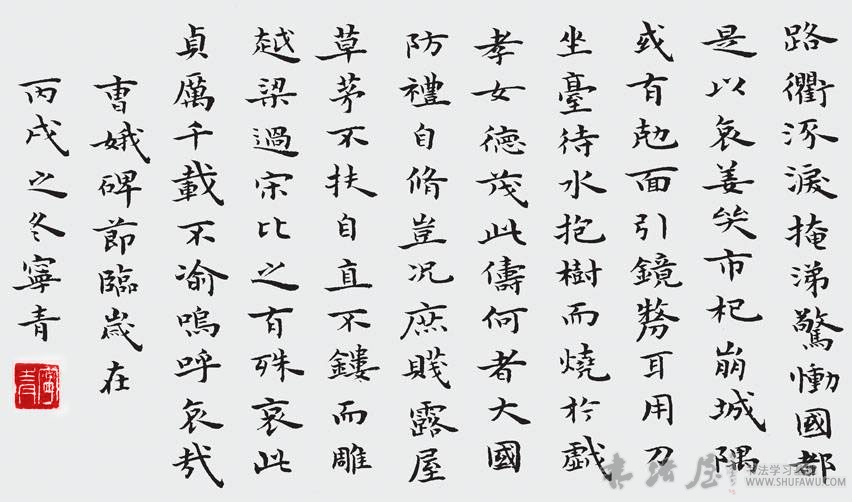 路衢流淚掩涕驚慟國都
是以哀姜哭市杞崩城隅
或有尅面引鏡剺耳用刀
坐臺待水抱樹而燒於戯
孝女德茂此儔何者大國
防禮自脩豈况庶賤露屋
草茅不扶自直不鏤而雕
越梁過宋比之有殊哀此
貞厲千載不渝嗚呼哀哉
曹娥碑節臨歲在
丙戌之冬寧青
书法屋
书法学习
WWW.SHUFAWU.COM